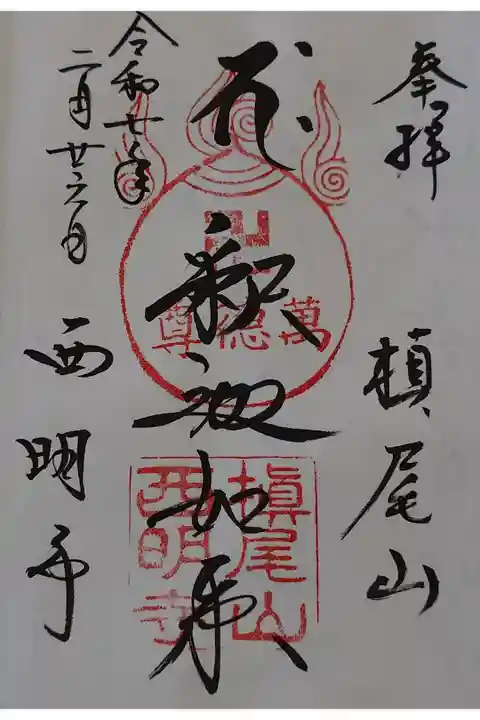 奉拝
槙尾山
釈迦如来
萬德尊
槇尾山
西明寺
令和七年
二月廿六日
西明寺